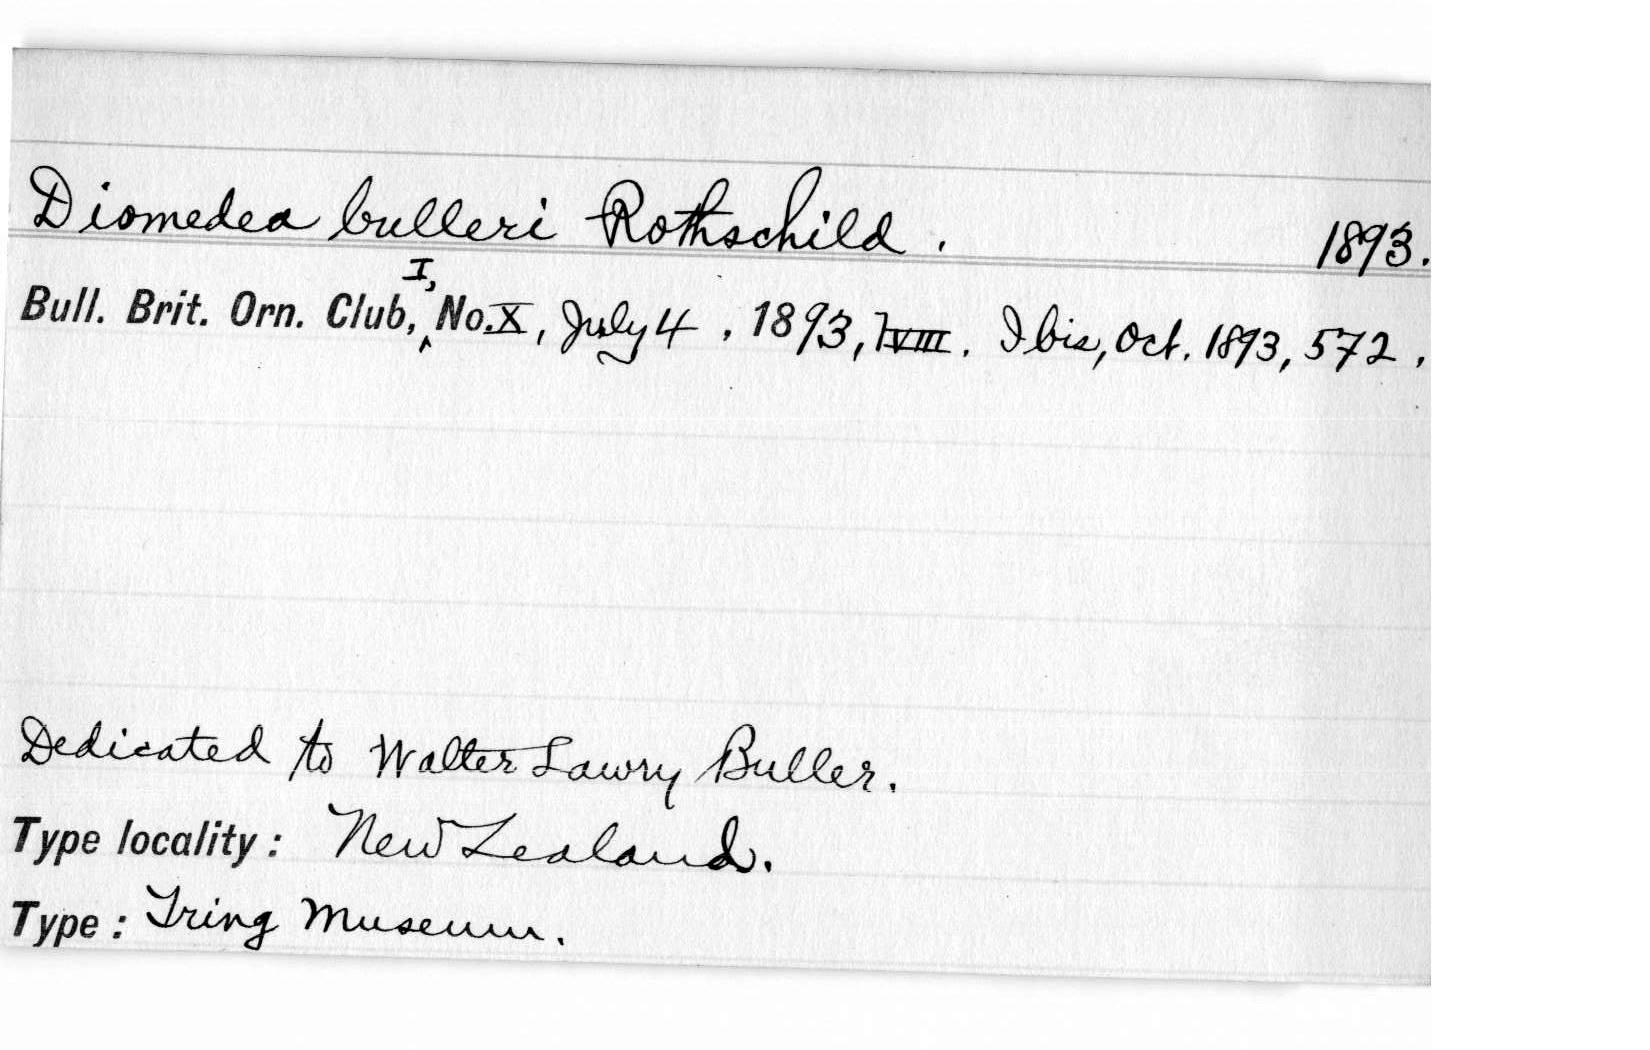 Diomedea bulleri Rothschild. 1893.
I,
Bull. Brit. Orn. Club, No. X, July 4, 1893, lviii. Ibis, Oct. 1893, 572.
Dedicated to Walter Lawry Buller.
Type locality: New Zealand.
Type: Tring Museum.